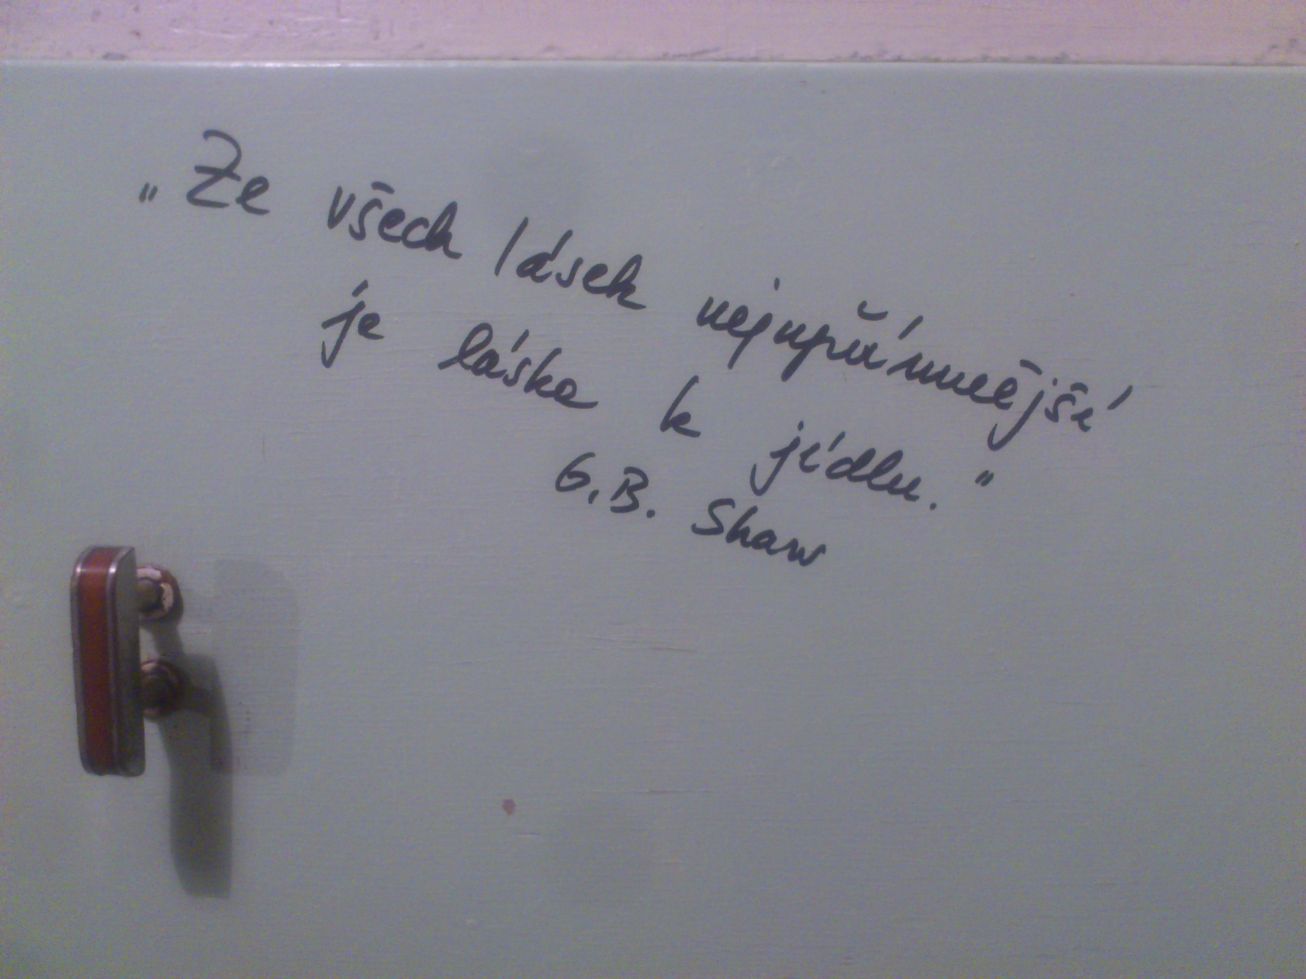 „Ze všech lásek nejupřímnější
je láska k jídlu."
G.B. Shaw